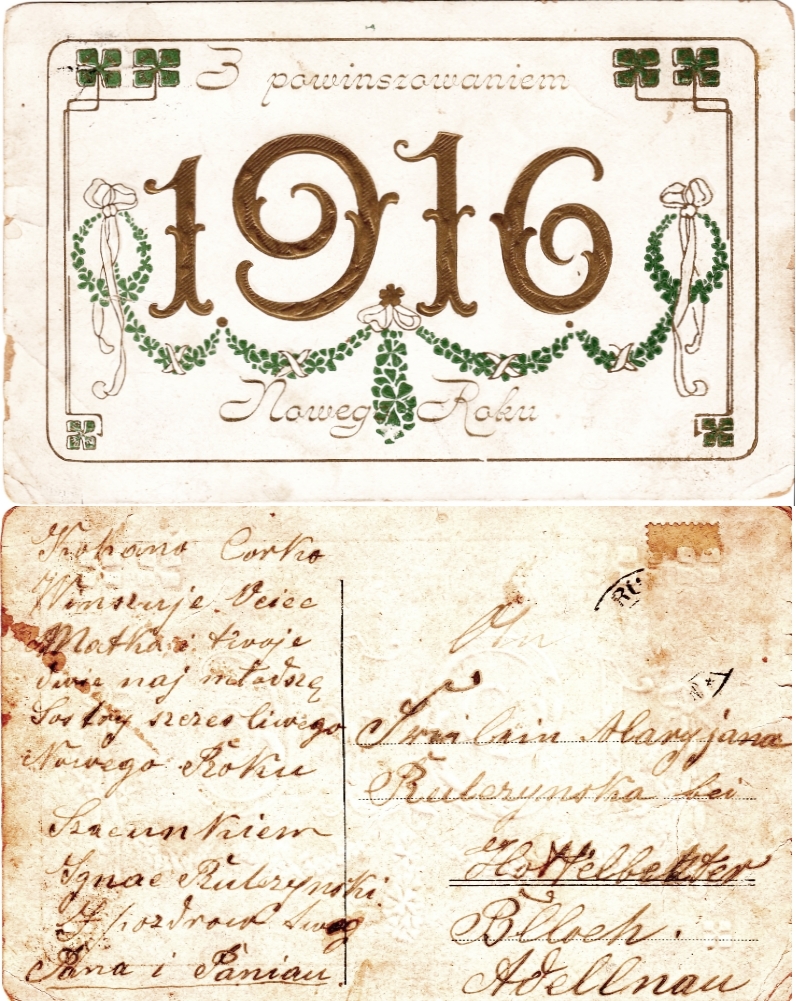 Z powinszowaniem
1916
Nowego Roku
Kohano Corko
Winszuje Ociec
Matka i twoje
dwie naj mlodszę
Sostry szczesliwego
Nowego Roku
Szacunkiem
Ignac Rulczynski
pozdrow tweg
Pana i Paniau.
RU
An
Freilein Maryjana
Rulczynska bei
Hottelbekter
Blloch.
Adellnau